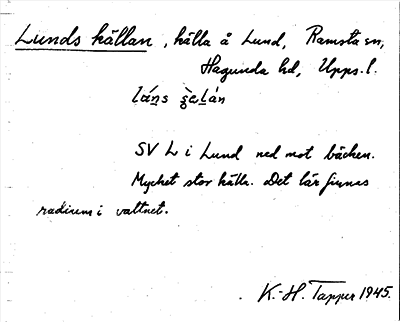 Lunds källan, källa å Lund, Ramsta sn,
Hagunda hd, Upps. l.
SV L i Lund ned mot bäcken.
Mycket stor källa. Det lär finnas
radium i vattnet.
K.-H. Tapper 1945.